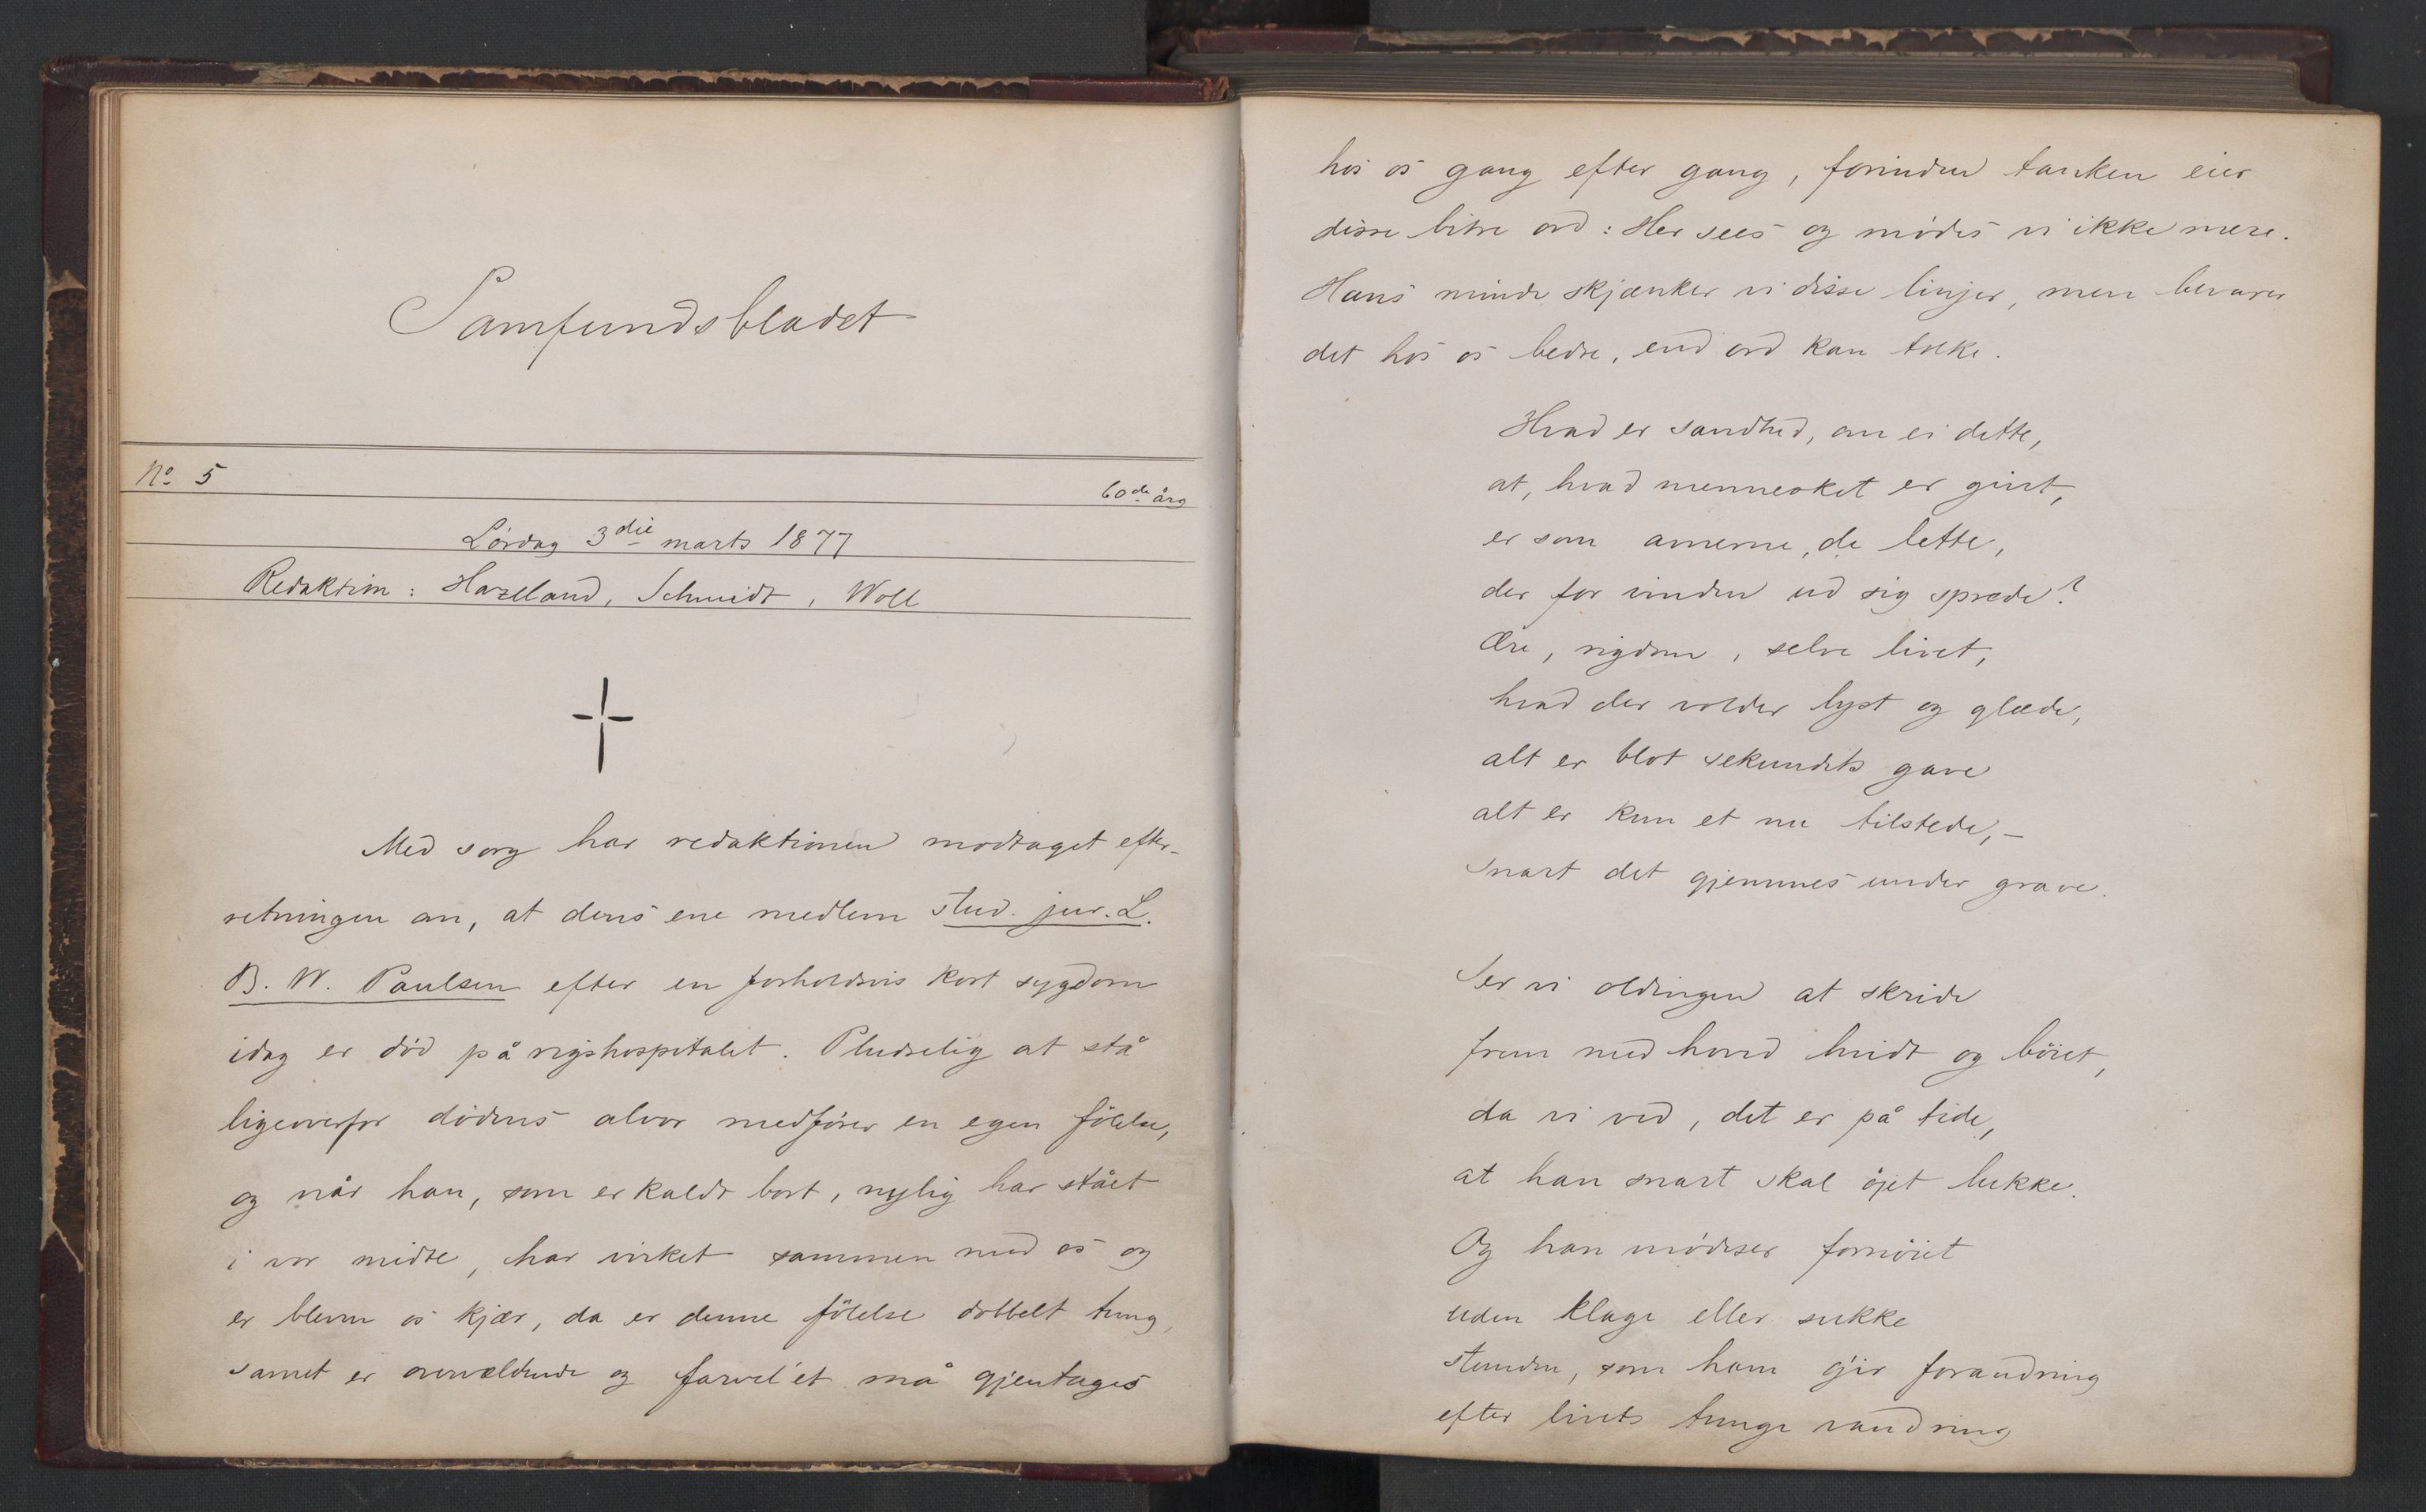 Samfundsbladet
No 5 60de årg
Lørdag 3die marts 1877
Redaktion: Hazeland, Schmidt, Woll
Med sorg har redaktionen modtaget efter-
retningen om, at dens ene medlem stud. jur. L.
B. W. Paulsen efter en forholdsvis kort sygdom
idag er død på rigshospitalet. Pludselig at stå
ligeoverfor dødens alvor medfører en egen følelse,
og når han, som er kaldt bort, nylig har stået
i vor midte, har virket sammen med os og
er bleven os kjær, da er denne følelse dobbelt tung,
savnet er overvældende og farvel'et må gjentages
hos os gang efter gang, forinden tanken eier
disse bitre ord: Her sees og mødes vi ikke mere.
Hans minde skjænker vi disse linjer, men bevarer
det hos os bedre, end ord kan tolke.
Hvad er sandhed, om ei dette,
at, hvad mennesket er givet,
er som avnerne, de lette,
der for vinden ud sig sprede?
Ære, rigdom, selve livet,
hvad der volder lyst og glæde,
alt er blot sekundets gave
alt er kun et nu tilstede,—
Snart det gjemmes under grave.
Ser vi oldingen at skride
frem med hoved hvidt og bøiet,
da vi ved, det er på tide,
at han snart skal øjet lukke.
Og han mødeser fornøiet
uden klage eller sukke
stunden, som ham gir forandring
efter livets tunge vandring